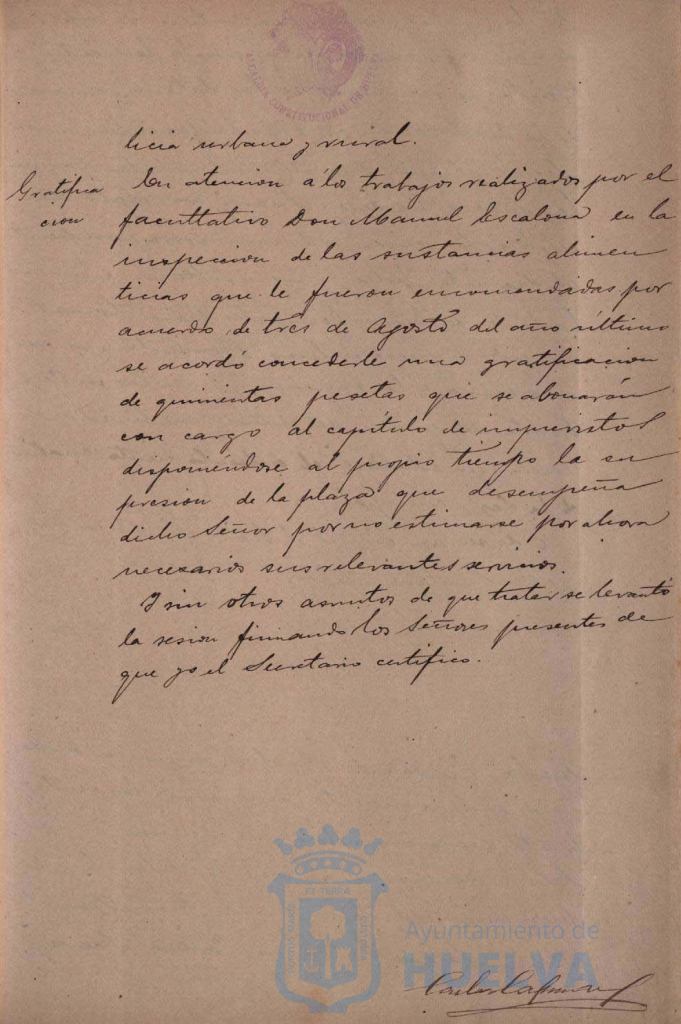 ALCALDIA CONSTITUCIONAL DE HUELVA
licia urbana y rural.
Gratifica
cion
En atencion á los trabajos realizados por el
facultativo Don Manuel Escalona en la
inspeccion de las sustancias alimen
ticias que le fueron encomendadas por
acuerdo de tres de Agosto del año último
se acordó concederle una gratificacion
de quinientas pesetas que se abonarán
con cargo al capítulo de imprevistos
disponiéndose al propio tiempo la su
presion de la plaza que desempeña
dicho Señor por no estimarse por ahora
necesarios sus relevantes servicios.
I sin otros asuntos de que tratar se levantó
la sesion firmando los Señores presentes de
que yo el Secretario certifico.
PORTUS MARIS
ET TERRÆ
CUSTODIA
Ayuntamiento de
HUELVA
Carlos